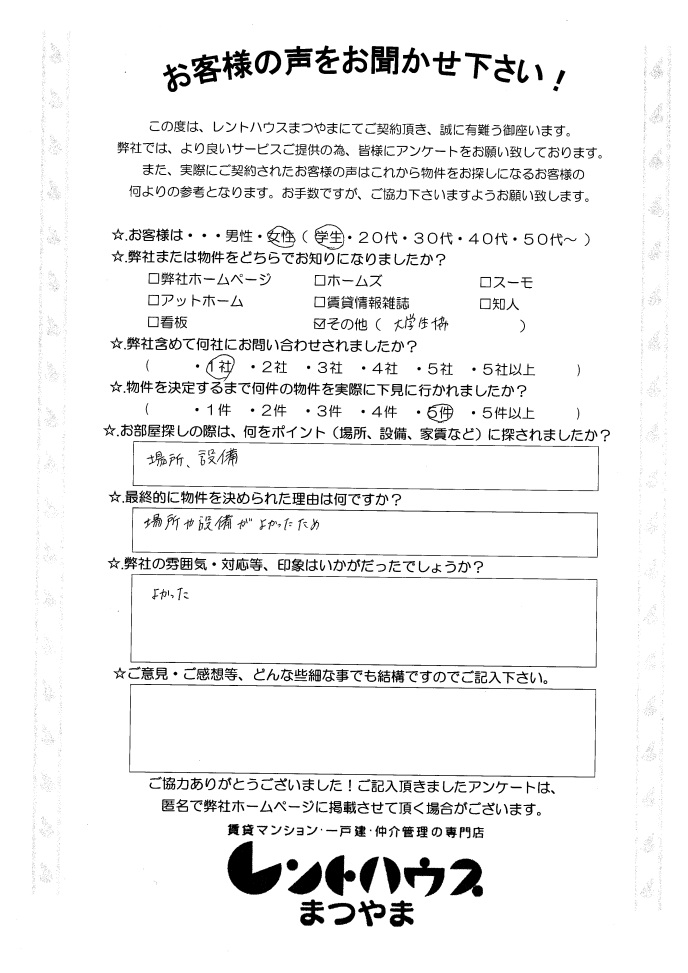 お客様の声をお聞かせ下さい！
この度は、レントハウスまつやまにてご契約頂き、誠に有難う御座います。
弊社では、より良いサービスご提供の為、皆様にアンケートをお願い致しております。
また、実際にご契約されたお客様の声はこれから物件をお探しになるお客様の
何よりの参考となります。お手数ですが、ご協力下さいますようお願い致します。
☆.お客様は・・・男性・女性（ 学生・２０代・３０代・４０代・５０代～ ）
☆.弊社または物件をどちらでお知りになりましたか？
□弊社ホームページ □ホームズ □スーモ
□アットホーム □賃貸情報雑誌 □知人
□看板 ☑その他（ 大学生協 ）
☆.弊社含めて何社にお問い合わせされましたか？
（ ・１社 ・２社 ・３社 ・４社 ・５社 ・５社以上 ）
☆.物件を決定するまで何件の物件を実際に下見に行かれましたか？
（ ・１件 ・２件 ・３件 ・４件 ・５件 ・５件以上 ）
☆.お部屋探しの際は、何をポイント（場所、設備、家賃など）に探されましたか？
場所、設備
☆.最終的に物件を決められた理由は何ですか？
場所や設備がよかったため
☆.弊社の雰囲気・対応等、印象はいかがだったでしょうか？
よかった
☆ご意見・ご感想等、どんな些細な事でも結構ですのでご記入下さい。
ご協力ありがとうございました！ご記入頂きましたアンケートは、
匿名で弊社ホームページに掲載させて頂く場合がございます。
賃貸マンション・一戸建・仲介管理の専門店
レントハウス
まつやま